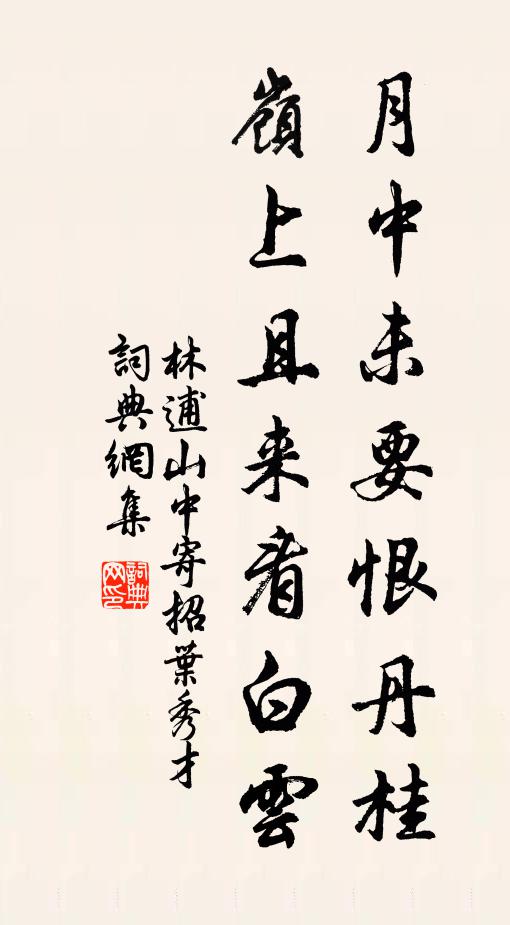 月中未要恨丹桂
嶺上且来看白雲
林逋山中寄招葉秀才
詞典網集
詞典网印